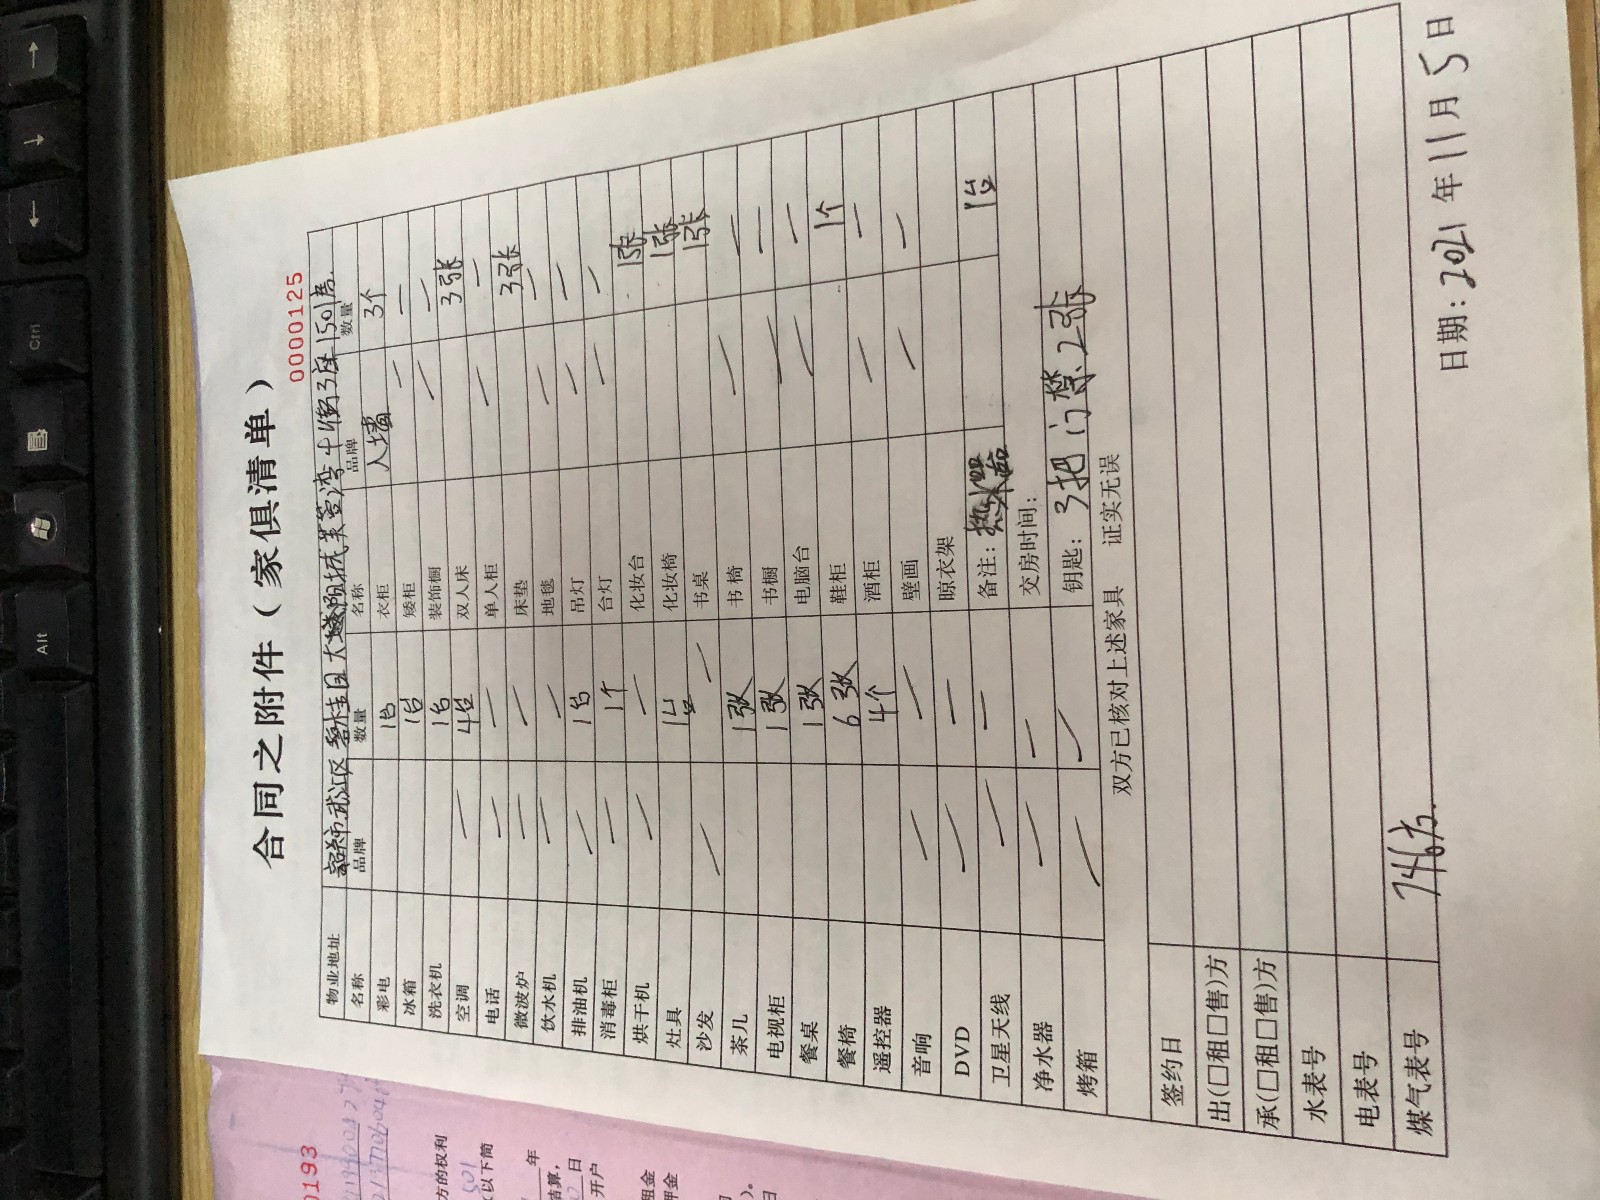 合同之附件（家俱清单）
0000125
物业地址 韶关市武江区碧桂园太阳城芙蓉湾十街3座1501房
名称 品牌 数量 名称 品牌 数量
彩电 1台 衣柜 入墙 3个
冰箱 1台 矮柜 — —
洗衣机 1台 装饰橱 — —
空调 — 4台 双人床 3张
电话 — — 单人柜 — —
微波炉 — — 床垫 3张
饮水机 — — 地毯 — —
排油机 — 1台 吊灯 — —
消毒柜 — 1个 台灯 — —
烘干机 — — 化妆台 1张
灶具 1台 化妆椅 1张
沙发 — — 书桌 1张
茶儿 1张 书椅 — —
电视柜 1张 书橱 — —
餐桌 1张 电脑台 — —
餐椅 6张 鞋柜 1个
遥控器 4个 酒柜 — —
音响 — — 壁画 — —
DVD — — 晾衣架
卫星天线 — — 备注：热水器 1台
净水器 — — 交房时间：
烤箱 — — 钥匙：3把 门禁2张
双方已核对上述家具 证实无误
签约日
出(□租□售)方
承(□租□售)方
水表号
电表号
煤气表号 746方.
日期：2021年11月5日
0193
方的权利
501
以下简
年
结算，
日
开户
租金
押金
)。
日
Alt
Ctrl